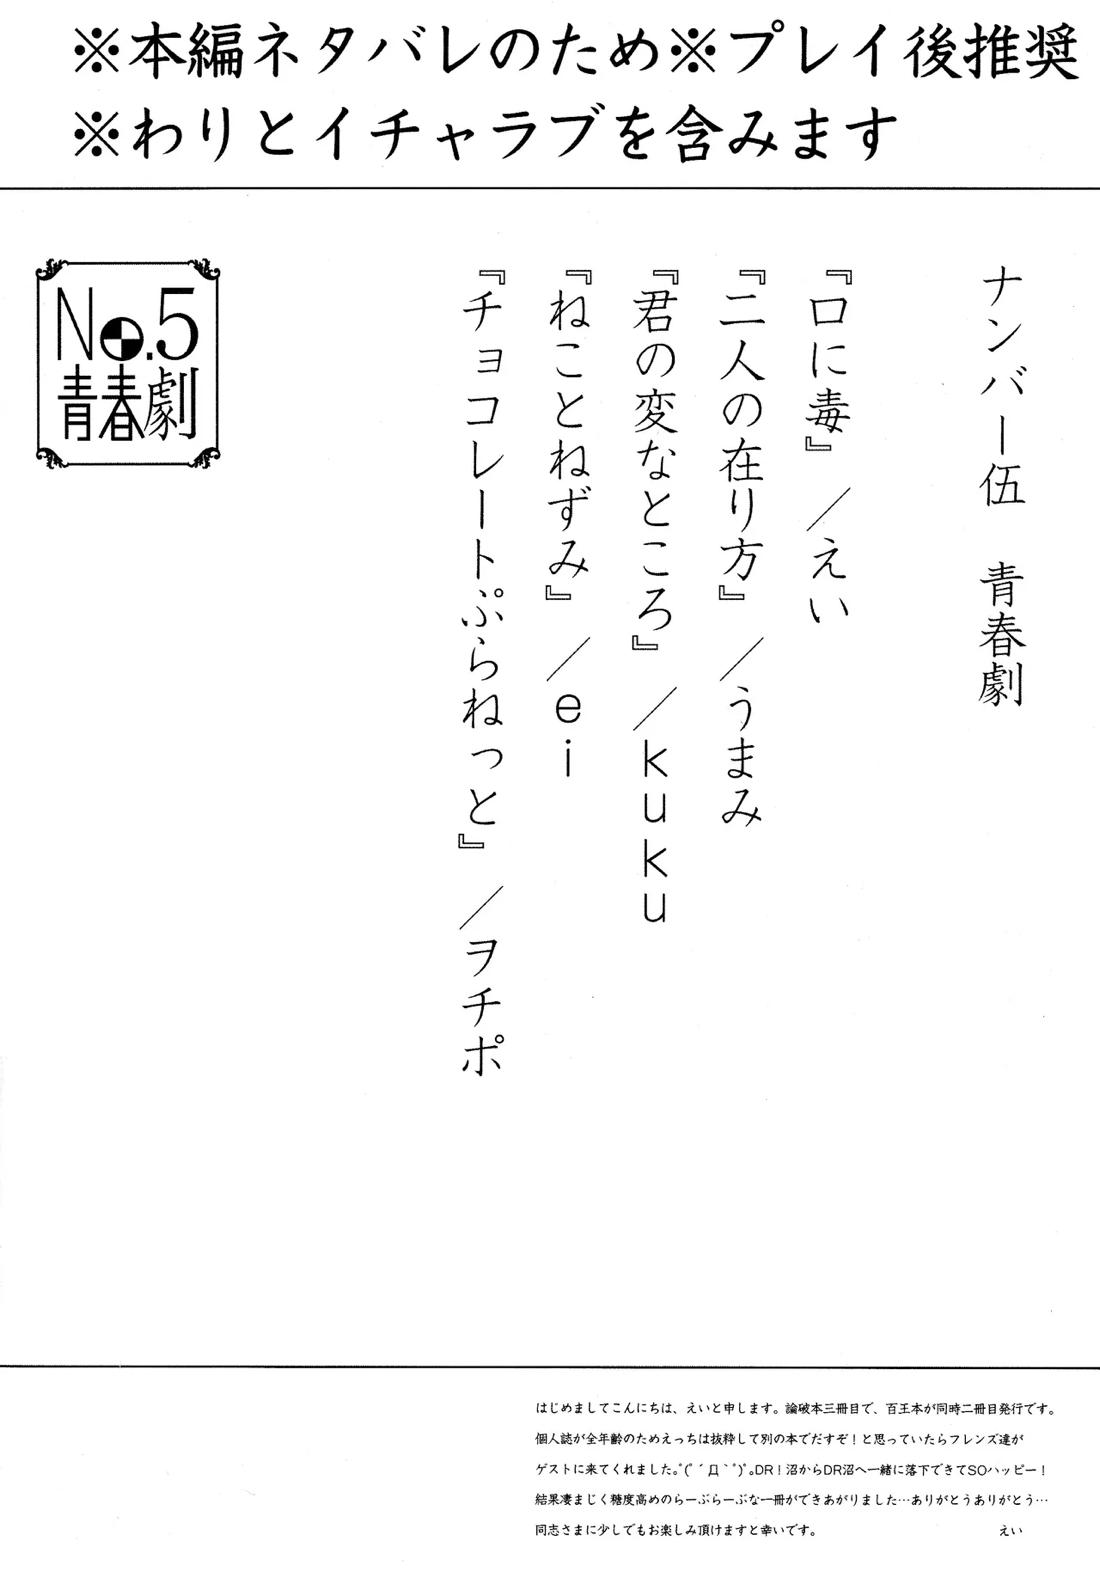 ※本編ネタバレのため※プレイ後推奨
※わりとイチャラブを含みます
ナンバー伍　青春劇
『口に毒』／えい
『二人の在り方』／うまみ
『君の変なところ』／kuku
『ねことねずみ』／ei
『チョコレートぷらねっと』／ヲチポ
No.5
青春劇
はじめましてこんにちは、えいと申します。論破本三冊目で、百王本が同時二冊目発行です。
個人誌が全年齢のためえっちは抜粋して別の本でだすぞ！と思っていたらフレンズ達が
ゲストに来てくれました｡ﾟ(ﾟ´Д｀ﾟ)ﾟ｡DR！沼からDR沼へ一緒に落下できてSOハッピー！
結果凄まじく糖度高めのらーぶらーぶな一冊ができあがりました…ありがとうありがとう…
同志さまに少しでもお楽しみ頂けますと幸いです。　えい